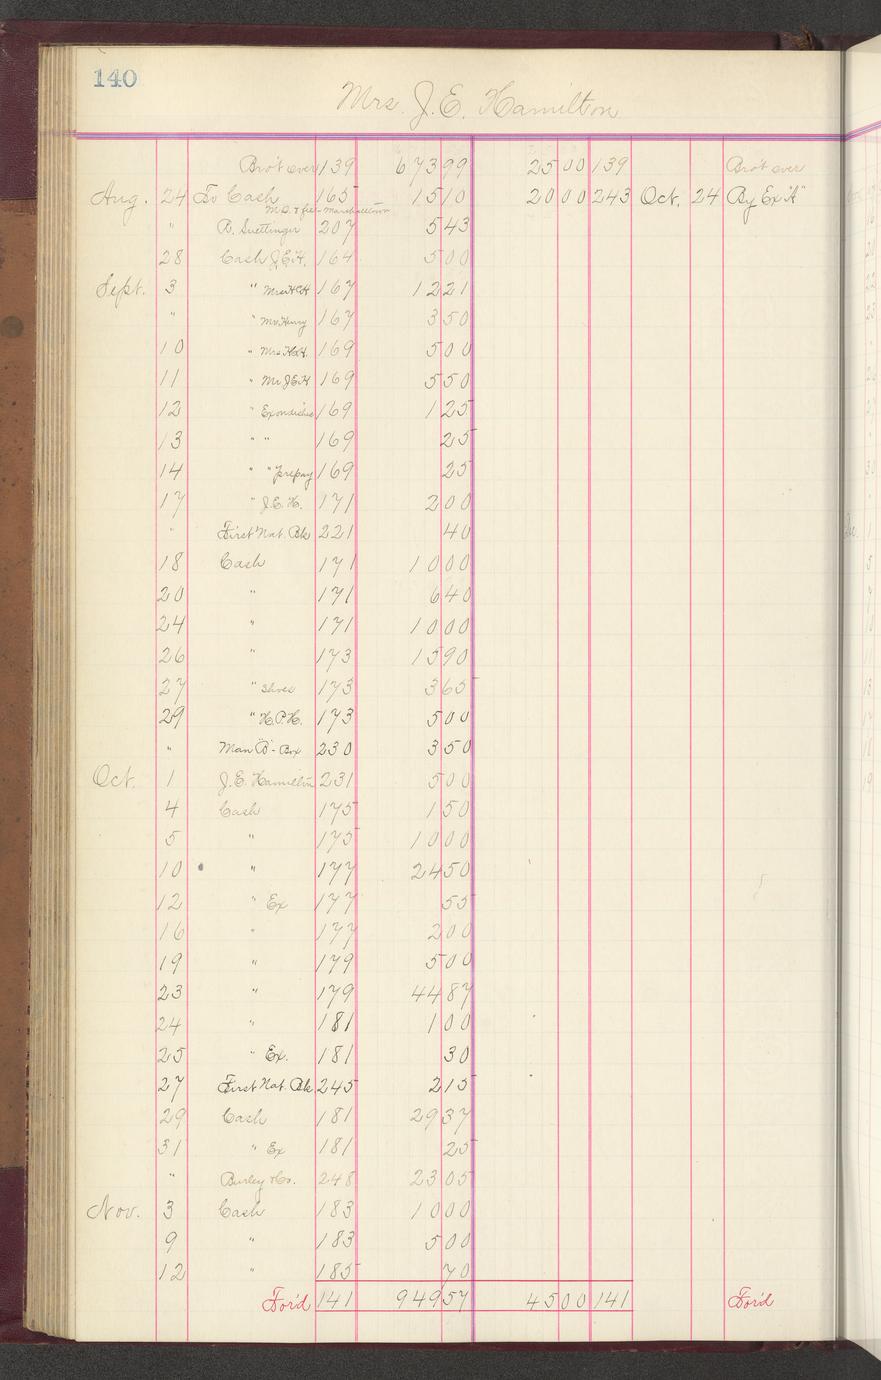 140
Mrs. J. E. Hamilton
Bro't over 139 673 99 25 00 139 Bro't over
Aug. 24 To Cash 165 15 10 20 00 243 Oct. 24 By Ex "A"
M.O. & fee - Marshalltown
" R. Suettinger 207 5 43
28 Cash J.E.H. 164 5 00
Sept. 3 " Mrs H.P.H 167 12 21
" " Mr. Henry 167 3 50
10 " Mrs H.P.H. 169 5 00
11 " Mr J.E.H 169 5 50
12 " Ex on dishes 169 1 25
13 " " 169 25
14 " " prepay 169 25
17 " J.E.H. 171 2 00
" First Nat. Bk 221 40
18 Cash 171 10 00
20 " 171 6 40
24 " 171 10 00
26 " 173 15 90
27 " Shoes 173 3 65
29 " H.P.H. 173 5 00
" Man "B" - Box 230 3 50
Oct. 1 J.E. Hamilton 231 5 00
4 Cash 175 1 50
5 " 175 10 00
10 " 177 24 50
12 " Ex 177 55
16 " 177 2 00
19 " 179 5 00
23 " 179 44 87
24 " 181 1 00
25 " Ex. 181 30
27 First Nat. Bk 245 2 15
29 Cash 181 29 37
31 " Ex 181 25
" Burley & Co. 248 23 05
Nov. 3 Cash 183 10 00
9 " 183 5 00
12 " 185 70
For'd 141 949 57 45 00 141 For'd